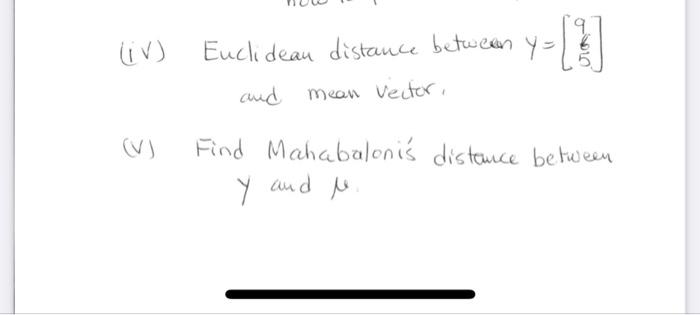 (iv) Euclidean distance between y = [9 6 5]
and mean vector.
(v) Find Mahabalonis distance between
y and μ.